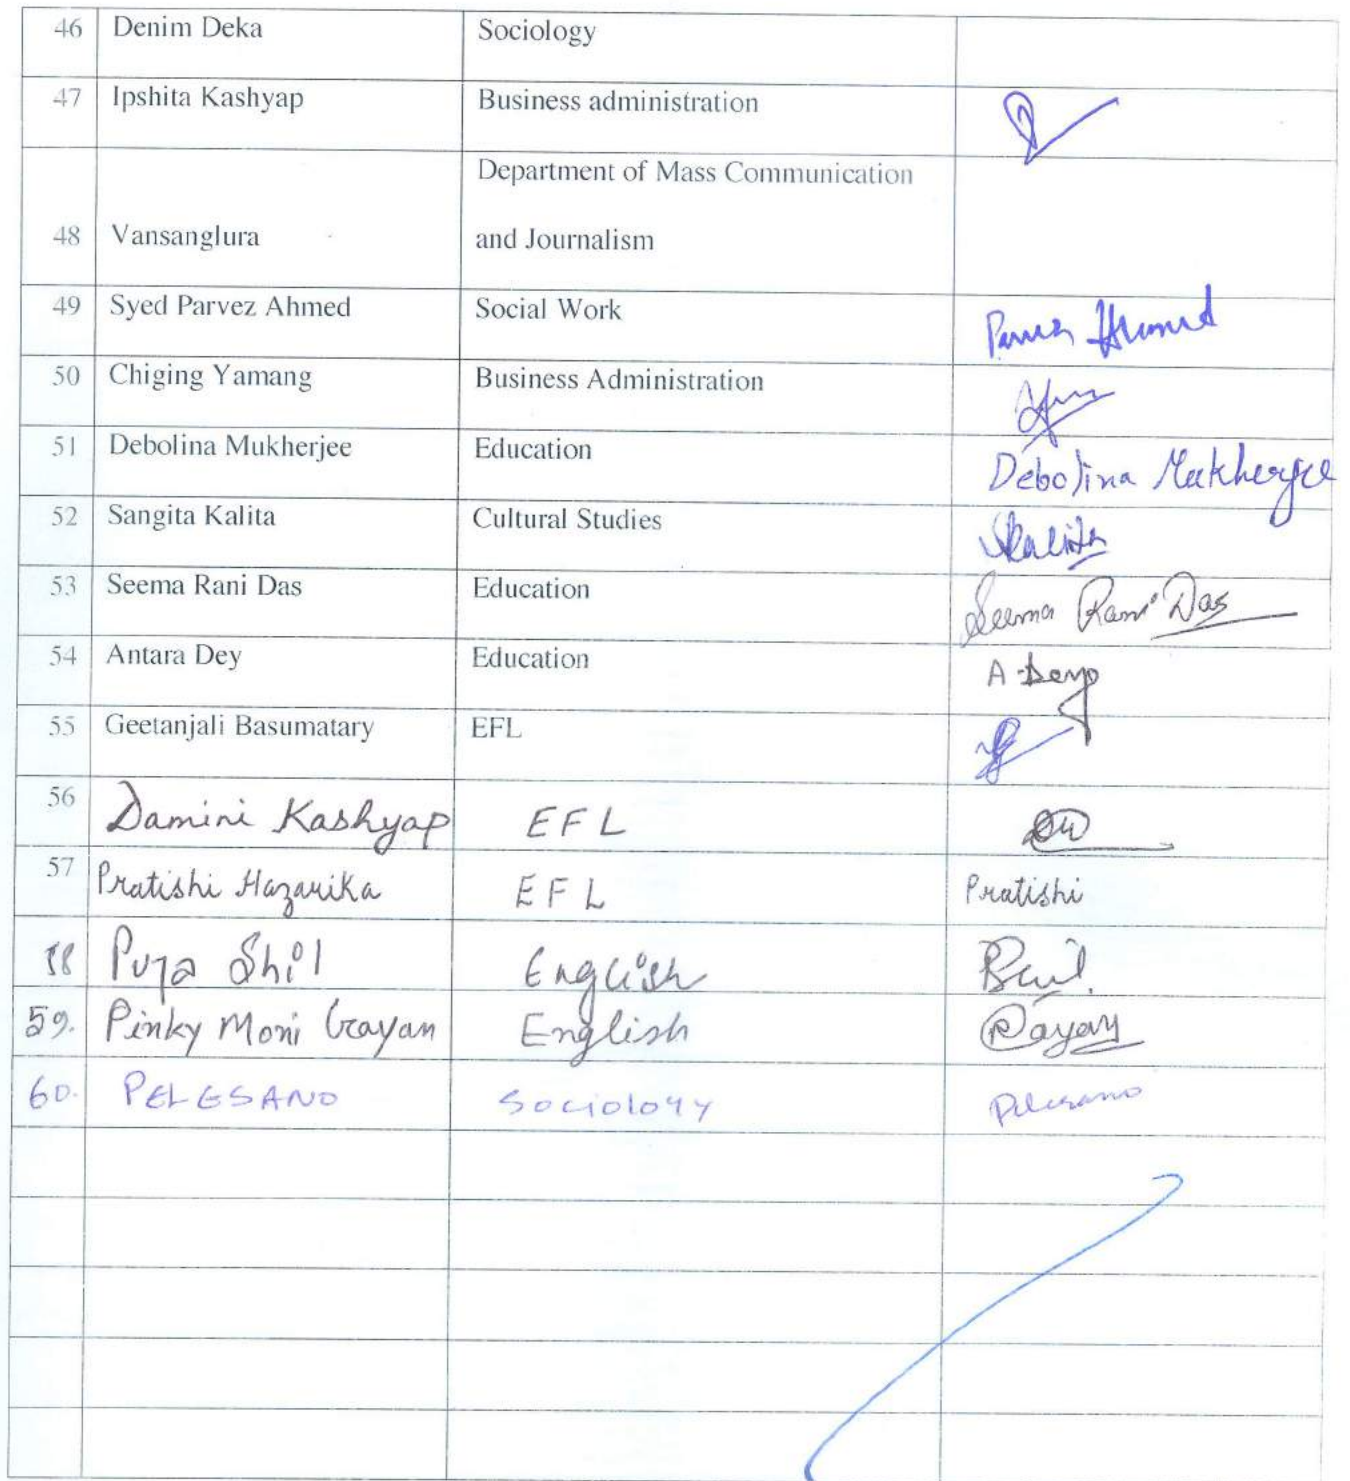 46 Denim Deka Sociology
47 Ipshita Kashyap Business administration
Department of Mass Communication
48 Vansanglura and Journalism
49 Syed Parvez Ahmed Social Work
50 Chiging Yamang Business Administration
51 Debolina Mukherjee Education Debolina Mukherjee
52 Sangita Kalita Cultural Studies
53 Seema Rani Das Education Seema Rani Das
54 Antara Dey Education A Dey
55 Geetanjali Basumatary EFL
56 Damini Kashyap EFL
57 Pratishi Hazarika EFL Pratishi
58 Puja Shil English
59. Pinky Moni Gayan English
60. PELESANO Sociology Pelesano